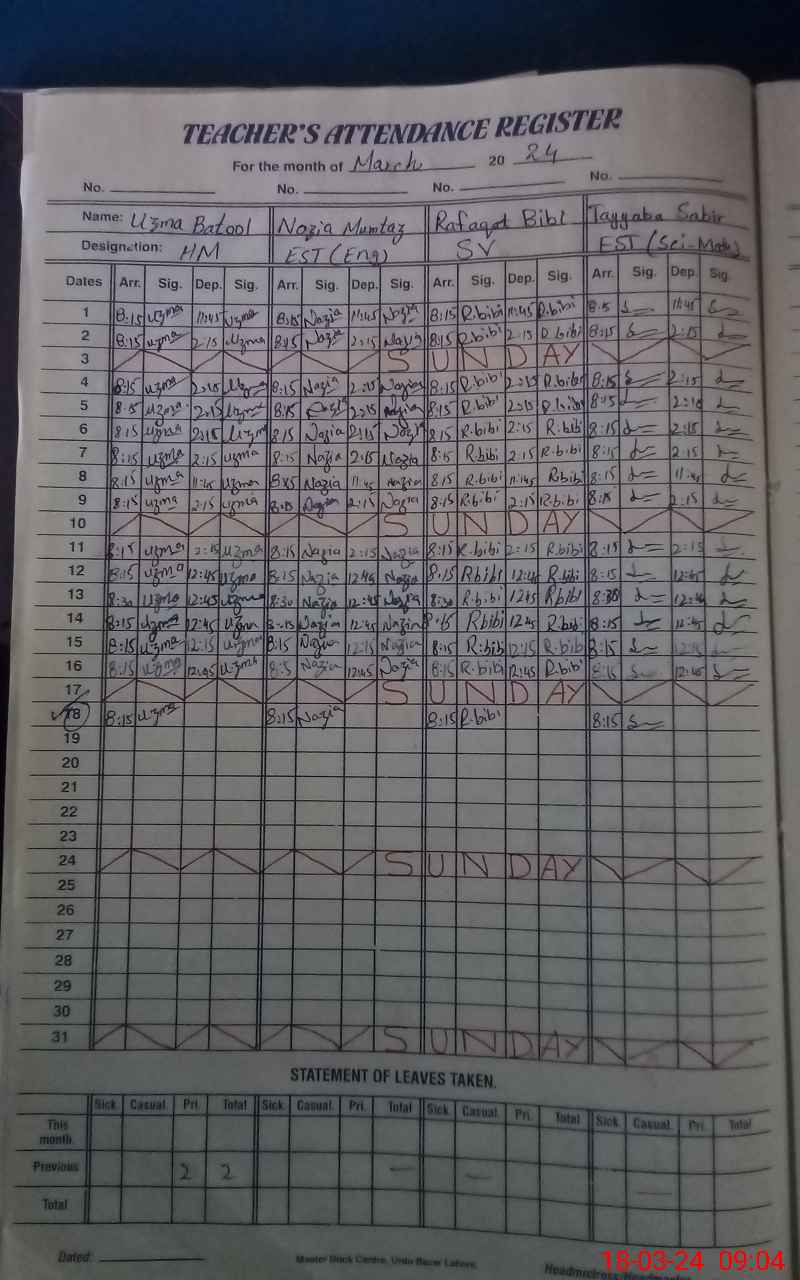 TEACHER'S ATTENDANCE REGISTER
For the month of March 20 24
No. No. No. No.
Name: Uzma Batool Nazia Mumtaz Rafaqat Bibi Tayyaba Sabir
Designation: HM EST (Eng) SV EST (Sci-Math)
Dates Arr. Sig. Dep. Sig. Arr. Sig. Dep. Sig. Arr. Sig. Dep. Sig. Arr. Sig. Dep. Sig.
1 8:15 Uzma 11:45 Uzma 8:15 Nazia 11:45 Nazia 8:15 R.bibi 11:45 R.bibi 8:5 11:45
2 8:15 Uzma 2:15 Uzma 8:15 Nazia 2:15 Nazia 8:15 R.bibi 2:15 R.bibi 8:15 2:15
3 SUNDAY
4 8:15 Uzma 2:15 Uzma 8:15 Nazia 2:15 Nazia 8:15 R.bibi 2:15 R.bibi 8:15 2:15
5 8:15 Uzma 2:15 Uzma 8:15 Nazia 2:15 Nazia 8:15 R.bibi 2:15 R.bibi 8:15 2:15
6 8:15 Uzma 2:15 Uzma 8:15 Nazia 2:15 Nazia 8:15 R.bibi 2:15 R.bibi 8:15 2:15
7 8:15 Uzma 2:15 Uzma 8:15 Nazia 2:15 Nazia 8:15 R.bibi 2:15 R.bibi 8:15 2:15
8 8:15 Uzma 11:45 Uzma 8:15 Nazia 11:45 Nazia 8:15 R.bibi 11:45 R.bibi 8:15 11:45
9 8:15 Uzma 2:15 Uzma 8:15 Nazia 2:15 Nazia 8:15 R.bibi 2:15 R.bibi 8:15 2:15
10 SUNDAY
11 8:15 Uzma 2:15 Uzma 8:15 Nazia 2:15 Nazia 8:15 R.bibi 2:15 R.bibi 8:15 2:15
12 8:15 Uzma 12:45 Uzma 8:15 Nazia 12:45 Nazia 8:15 R.bibi 12:45 R.bibi 8:15 12:45
13 8:30 Uzma 12:45 Uzma 8:30 Nazia 12:45 Nazia 8:30 R.bibi 12:45 R.bibi 8:30 12:45
14 8:15 Uzma 12:45 Uzma 8:15 Nazia 12:45 Nazia 8:15 R.bibi 12:45 R.bibi 8:15 12:45
15 8:15 Uzma 12:15 Uzma 8:15 Nazia 12:15 Nazia 8:15 R.bibi 12:15 R.bibi 8:15
16 8:15 Uzma 12:45 Uzma 8:5 Nazia 12:45 Nazia 8:15 R.bibi 12:45 R.bibi 8:15 12:45
17 SUNDAY
18 8:15 Uzma 8:15 Nazia 8:15 R.bibi 8:15
19
20
21
22
23
24 SUNDAY
25
26
27
28
29
30
31 SUNDAY
STATEMENT OF LEAVES TAKEN.
Sick Casual Pri. Total Sick Casual Pri. Total Sick Casual Pri. Total Sick Casual Pri. Total
This month.
Previous 2 2 — — —
Total
Dated:
Master Book Centre, Urdu Bazar Lahore.
18-03-24 09:04